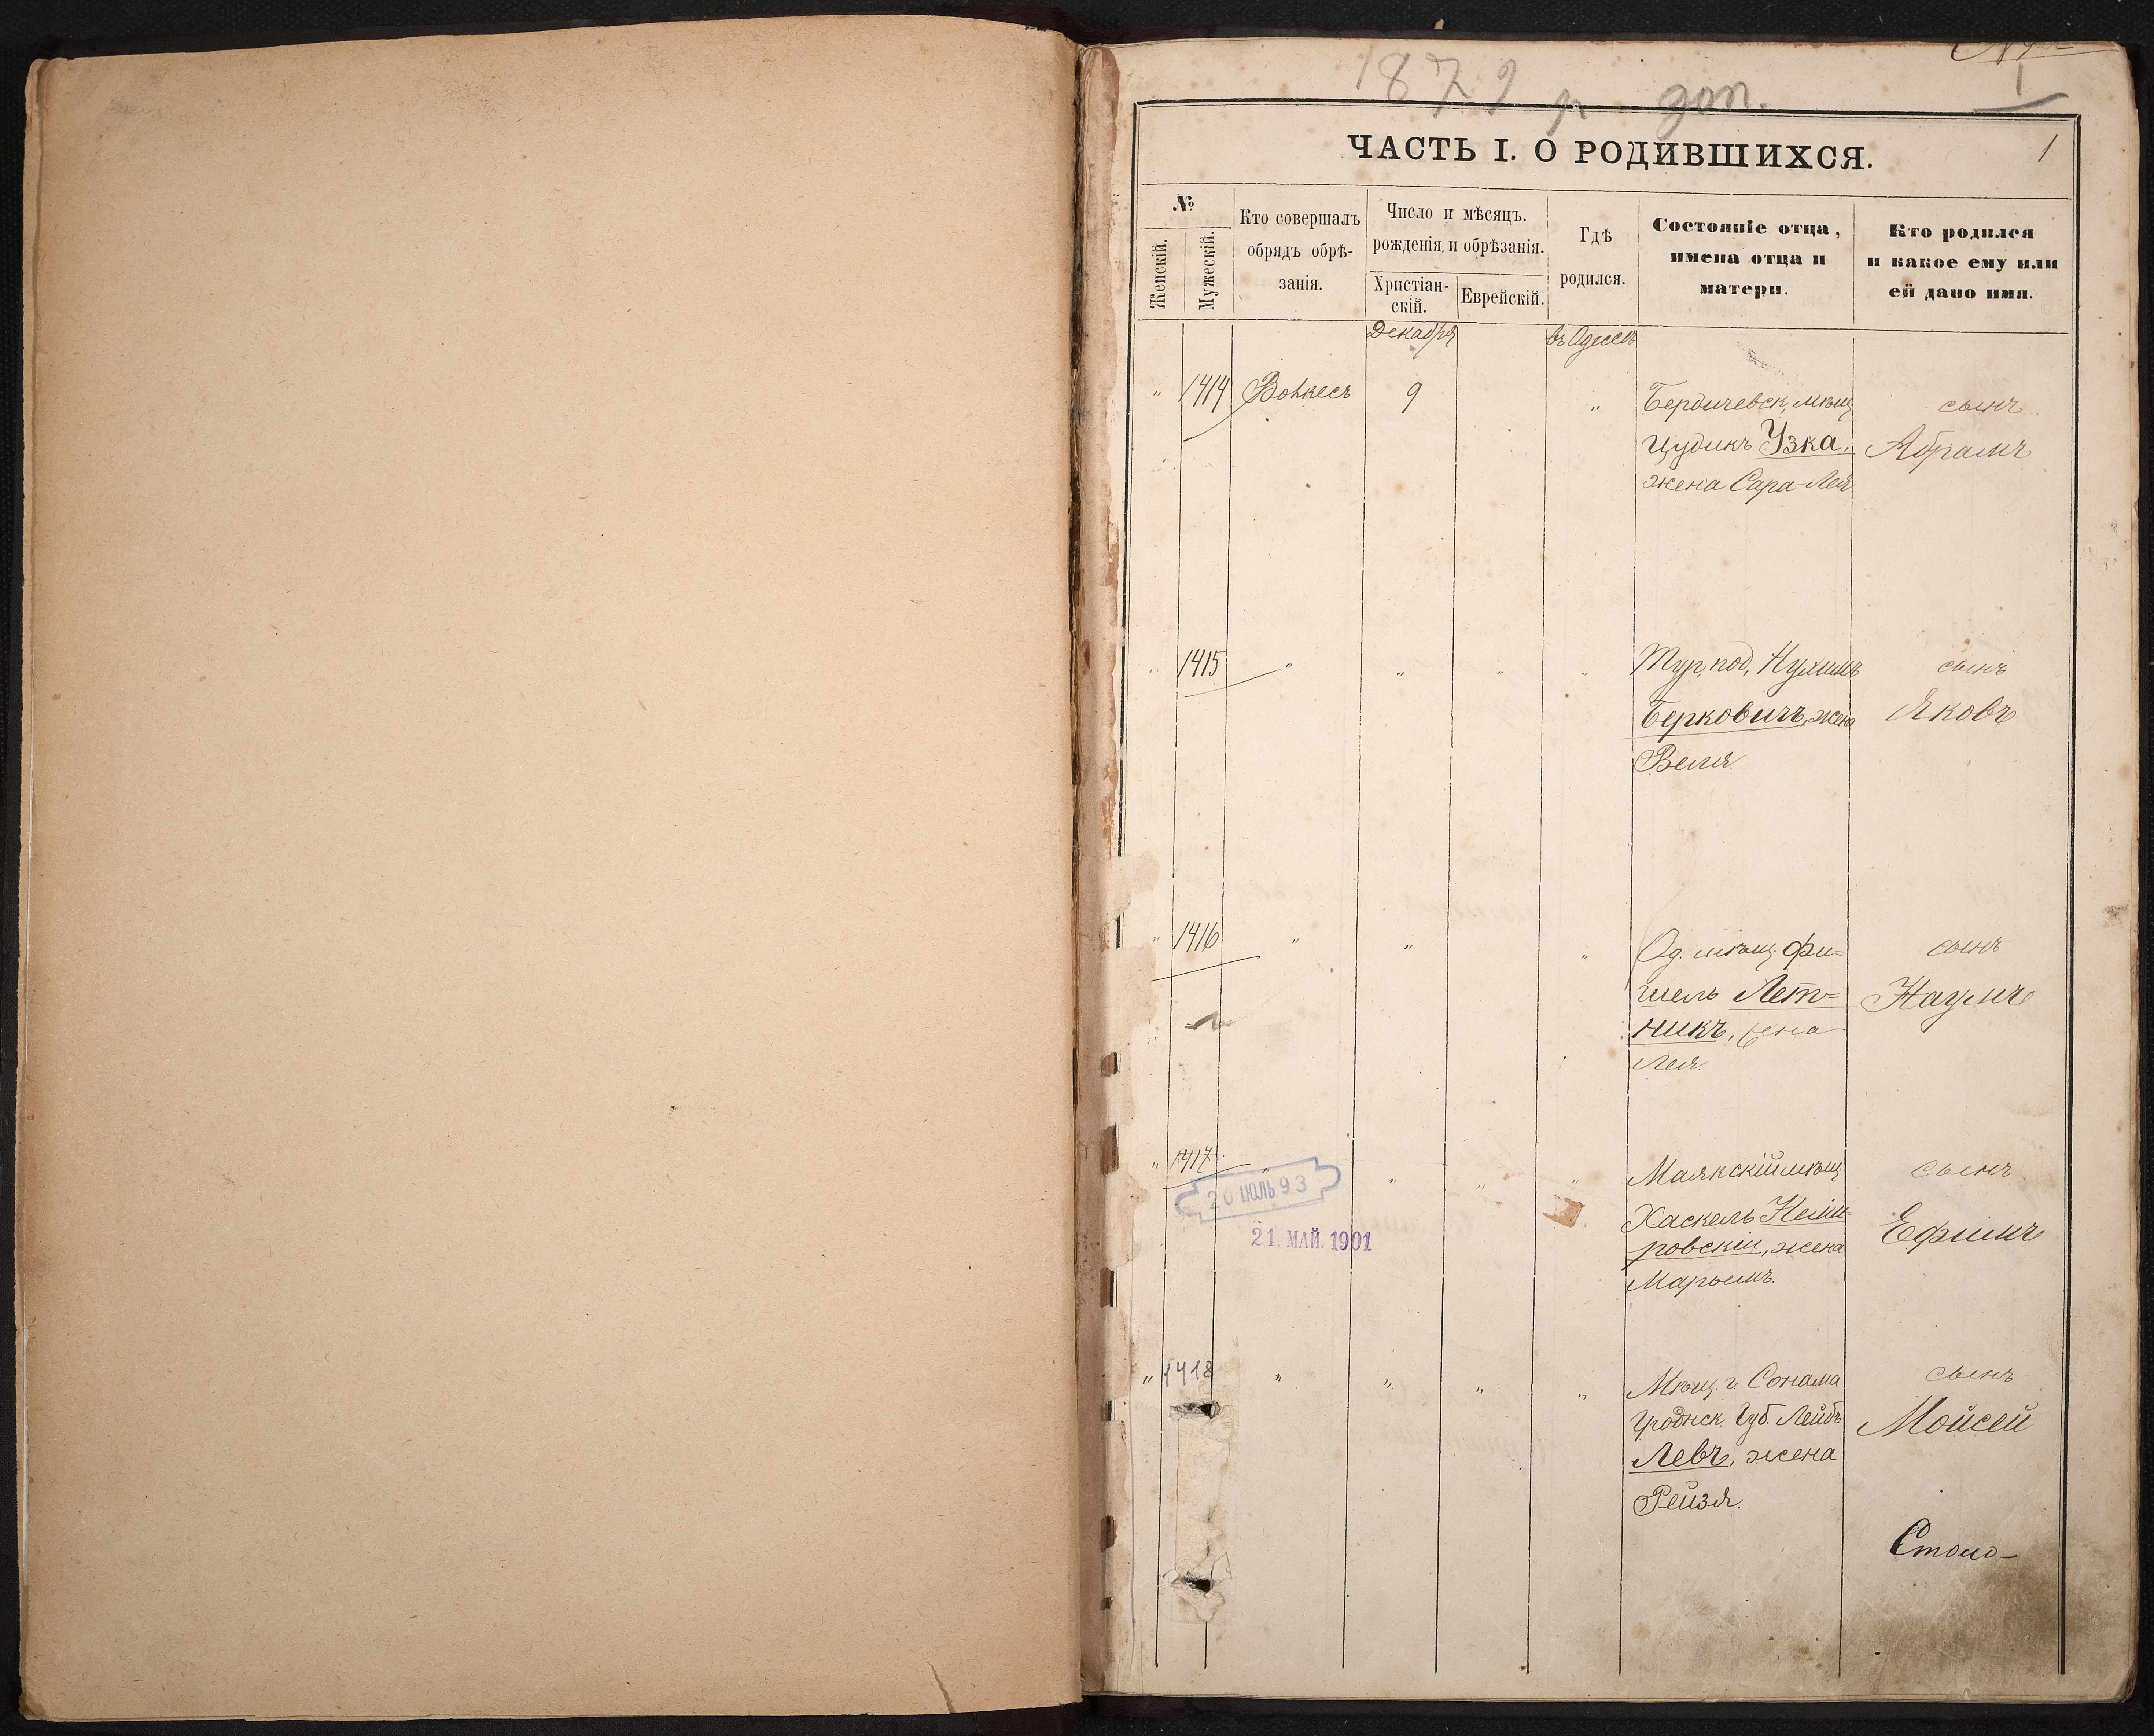 1879 р доп.
1
ЧАСТЬ I. О РОДИВШИХСЯ.
1
№
Женскій.
Мужескій.
Кто совершалъ
обрядъ обрѣ-
занія.
Число и мѣсяцъ.
рожденія и обрѣзанія.
Христіан-
скій.
Еврейскій.
Гдѣ
родился.
Состояніе отца,
имена отца и
матери.
Кто родился
и какое ему или
ей дано имя.
Декабря
въ Одессѣ
" 1414 9 " Бердичевск. мѣщ. сынъ
Цудикъ Узка, Абрамъ
жена Сара-Лея
1415 " " " " Тур. под. сынъ
Берковичъ, жена Яковъ
Веля.
" 1416 " " " Од. мѣщ. Фи= сынъ
шель Лет= Наумъ
никъ, жена
Лея.
" 1417 " " " " Маякскій мѣщ. сынъ
20 ІЮЛЬ 93
21. МАЙ. 1901
Хаскель Неми=
ровскій, жена Ефимъ
Марьемъ.
" 1418 " " " " Мѣщ. г. сынъ
Гроднск. Губ. Лейбъ Мойсей
Левъ, жена
Рейзя.